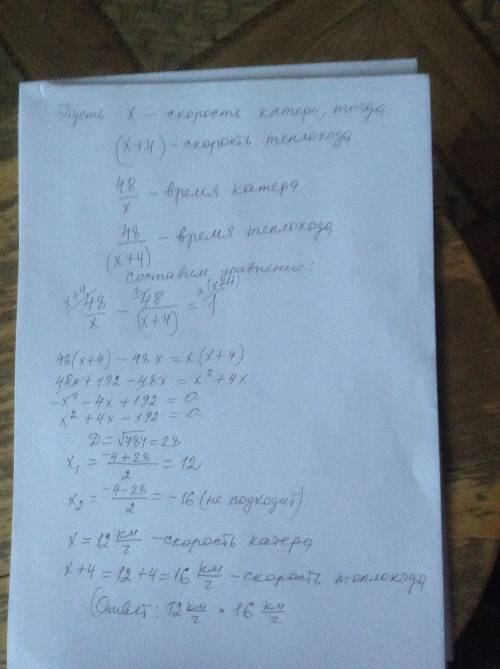 Пусть x – скорость катера, тогда
(x+4) – скорость теплохода
48/x – время катера
48/(x+4) – время теплохода
составим уравнение:
x+4 48/x – x 48/(x+4) = x(x+4) 1
48(x+4) – 48x = x(x+4)
48x+192 – 48x = x² + 4x
–x² – 4x + 192 = 0
x² + 4x – 192 = 0
D = √784 = 28
x₁ = (–4+28)/2 = 12
x₂ = (–4–28)/2 = –16 (не подходит)
x = 12 км/ч – скорость катера
x+4 = 12+4 = 16 км/ч – скорость теплохода
Ответ: 12 км/ч и 16 км/ч